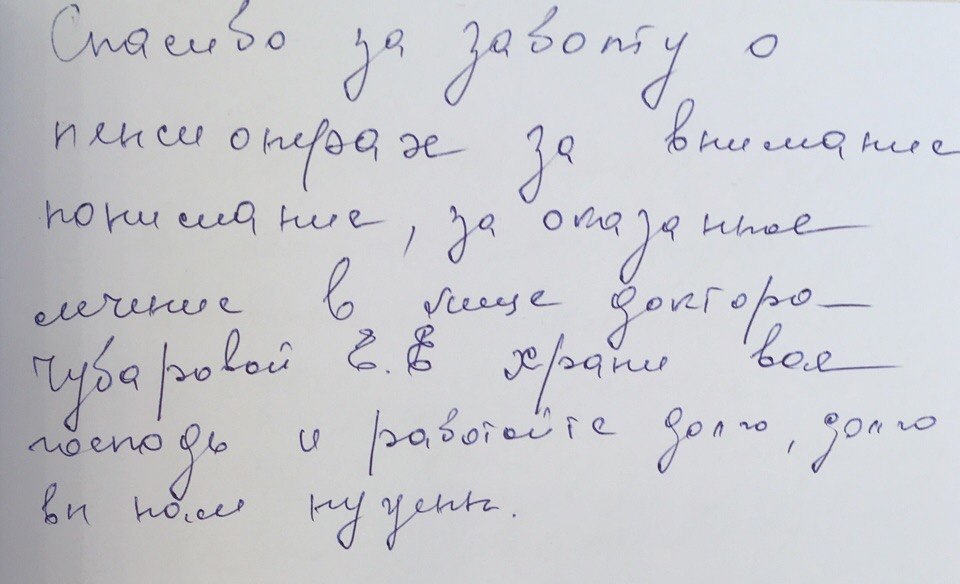 Спасибо за заботу о
пенсионерах за внимание
понимание, за оказанное
лечение в лице доктора
Чубаровой Е.Е храни вас
господь и работайте долго, долго
вы нам нужны.